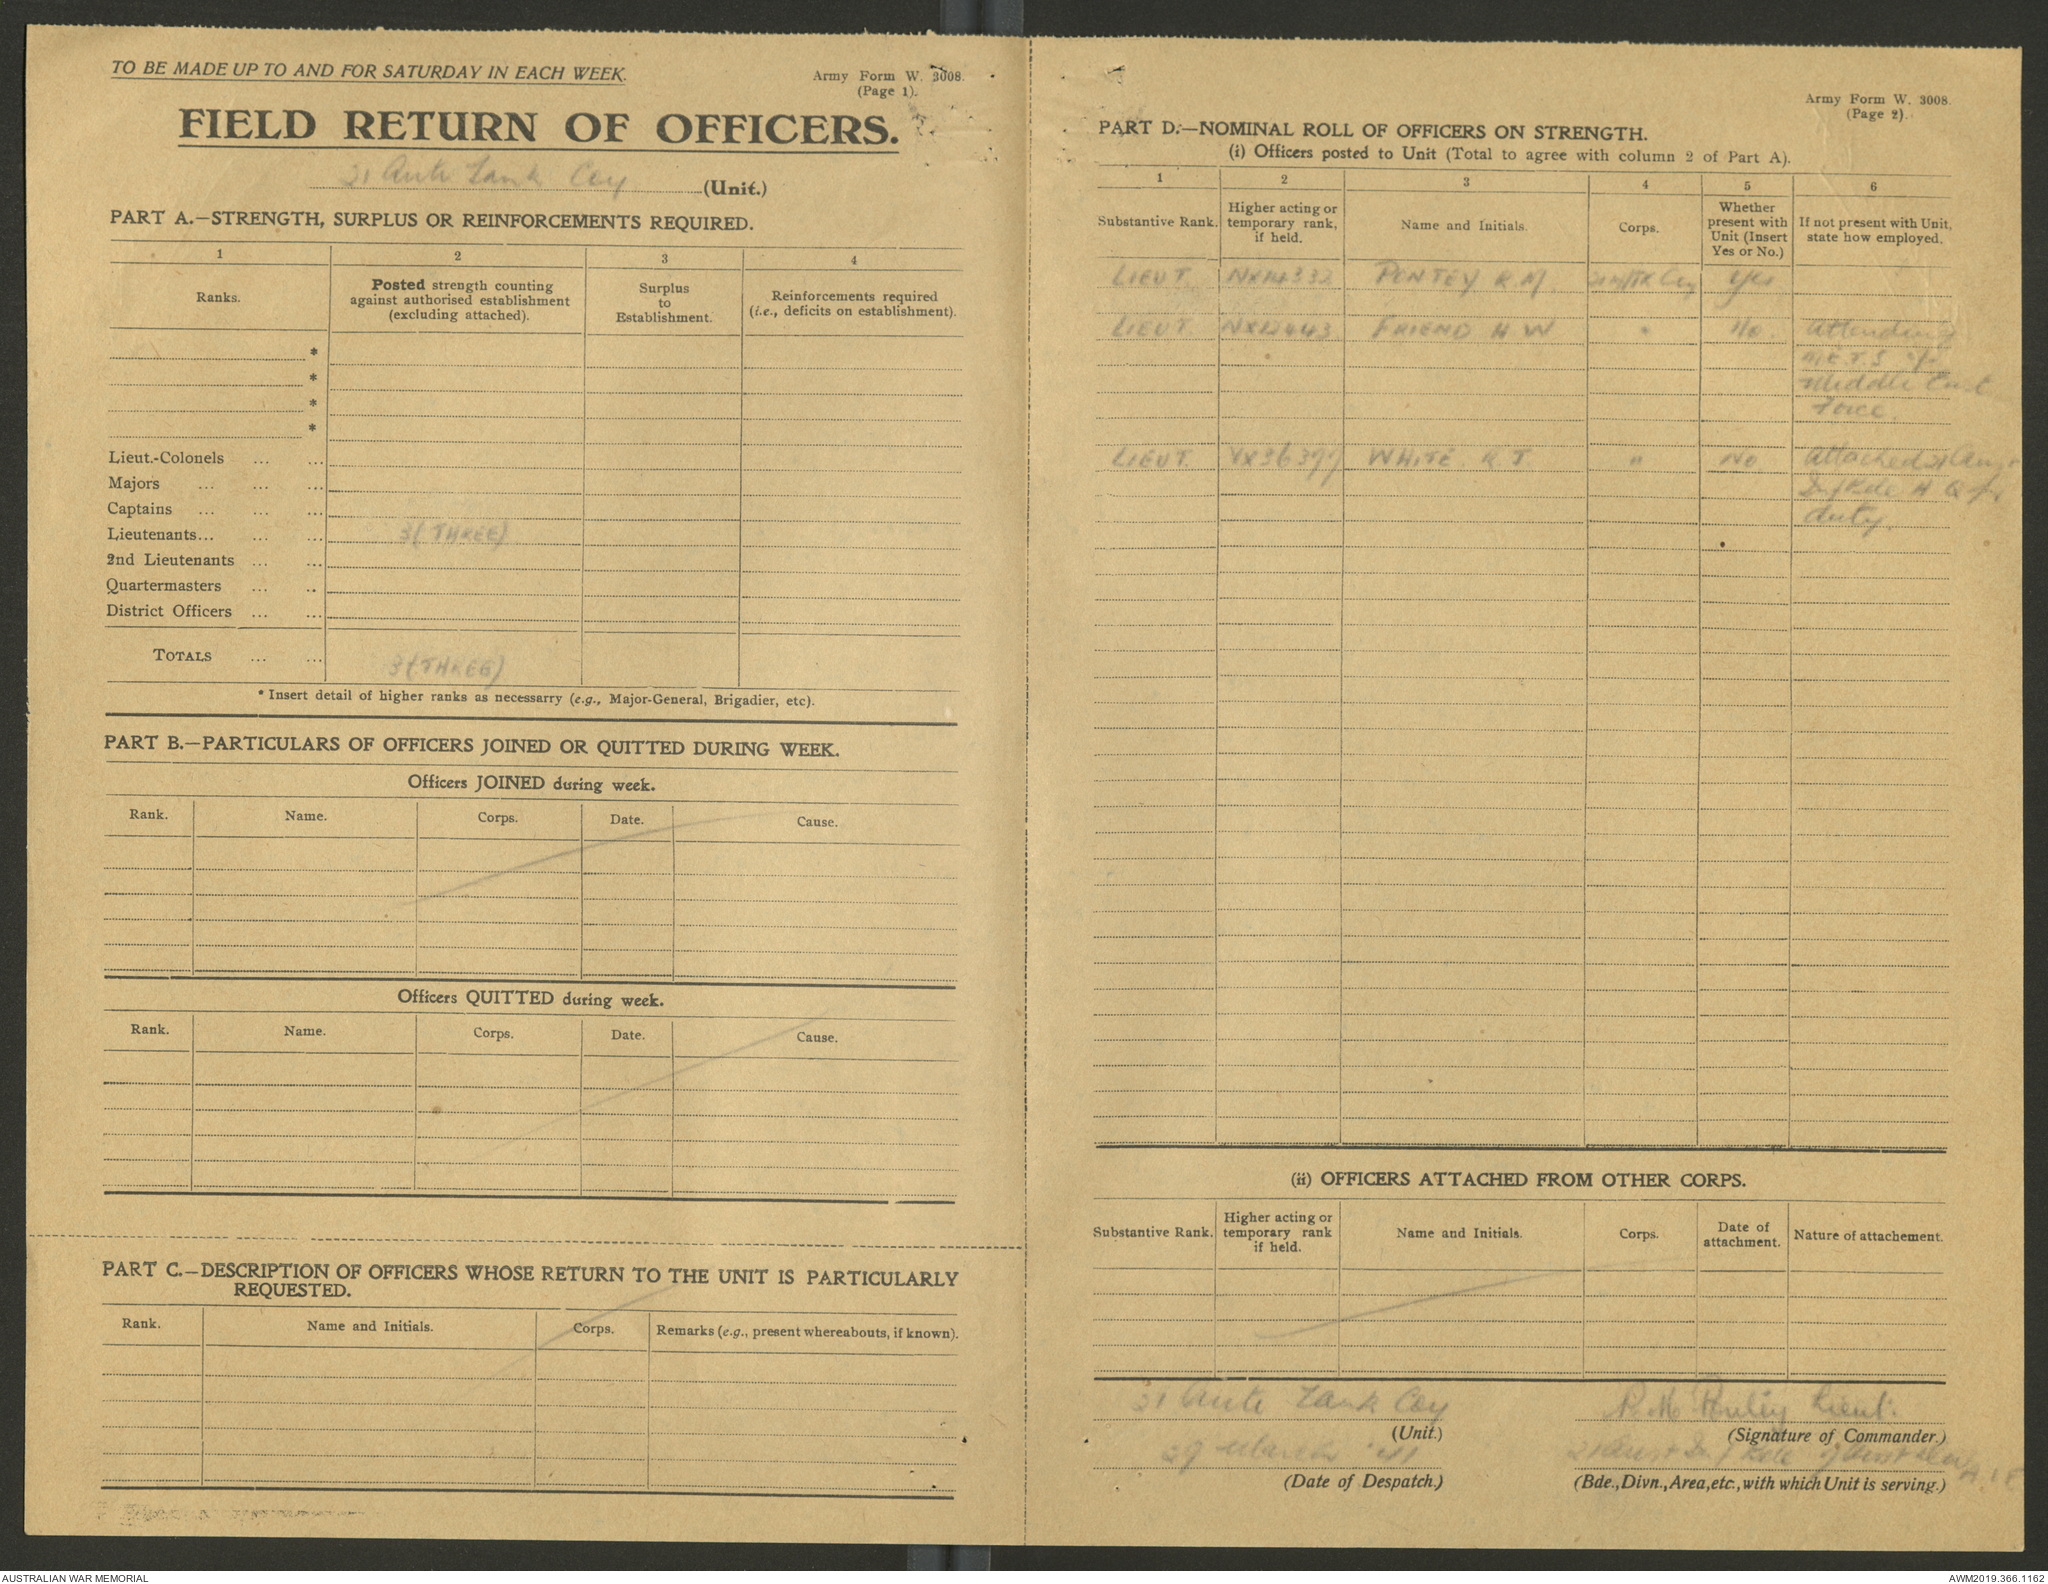 TO BE MADE UP TO AND FOR SATURDAY IN EACH WEEK.
Army Form W. 3008.
(Page 1).
FIELD RETURN OF OFFICERS.
21 Anti Tank Coy (Unit.)
PART A.—STRENGTH, SURPLUS OR REINFORCEMENTS REQUIRED.
1 2 3 4
Ranks. Posted strength counting against authorised establishment (excluding attached). Surplus to Establishment. Reinforcements required (i.e., deficits on establishment).
*
*
*
*
Lieut.-Colonels ... ...
Majors ... ... ...
Captains ... ... ...
Lieutenants... ... ... 3 (THREE)
2nd Lieutenants ... ...
Quartermasters ... ..
District Officers ... ...
TOTALS ... ... 3 (THREE)
* Insert detail of higher ranks as necessarry (e.g., Major-General, Brigadier, etc).
PART B.—PARTICULARS OF OFFICERS JOINED OR QUITTED DURING WEEK.
Officers JOINED during week.
Rank. Name. Corps. Date. Cause.
Officers QUITTED during week.
Rank. Name. Corps. Date. Cause.
PART C.—DESCRIPTION OF OFFICERS WHOSE RETURN TO THE UNIT IS PARTICULARLY
REQUESTED.
Rank. Name and Initials. Corps. Remarks (e.g., present whereabouts, if known).
Army Form W. 3008.
(Page 2).
PART D.—NOMINAL ROLL OF OFFICERS ON STRENGTH.
(i) Officers posted to Unit (Total to agree with column 2 of Part A).
1 2 3 4 5 6
Substantive Rank. Higher acting or temporary rank, if held. Name and Initials. Corps. Whether present with Unit (Insert Yes or No.) If not present with Unit, state how employed.
LIEUT. R.M. Coy Yes
LIEUT. FRIEND H W " No. Attending
M.E.T.S
Middle East
Force.
LIEUT. VX36397 WHITE. R. J. " No Attached
H Q
duty.
(ii) OFFICERS ATTACHED FROM OTHER CORPS.
Substantive Rank. Higher acting or temporary rank if held. Name and Initials. Corps. Date of attachment. Nature of attachement.
21 Anti Tank Coy R. M. Lieut.
(Unit.) (Signature of Commander.)
29 March '41 21 Aust A.I.F
(Date of Despatch.) (Bde., Divn., Area, etc., with which Unit is serving.)
AUSTRALIAN WAR MEMORIAL
AWM2019.366.1162